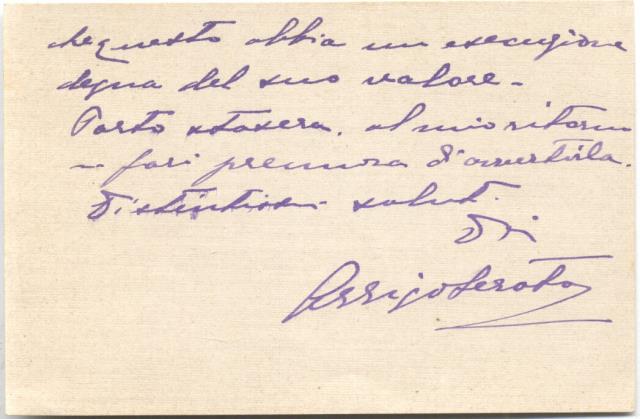 che questo abbia un esecuzione
degna del suo valore -
Parto stasera. al mio ritorno
- farò premura d'avvertirla.
Distintissimi saluti.
Di
Arrigo Serato